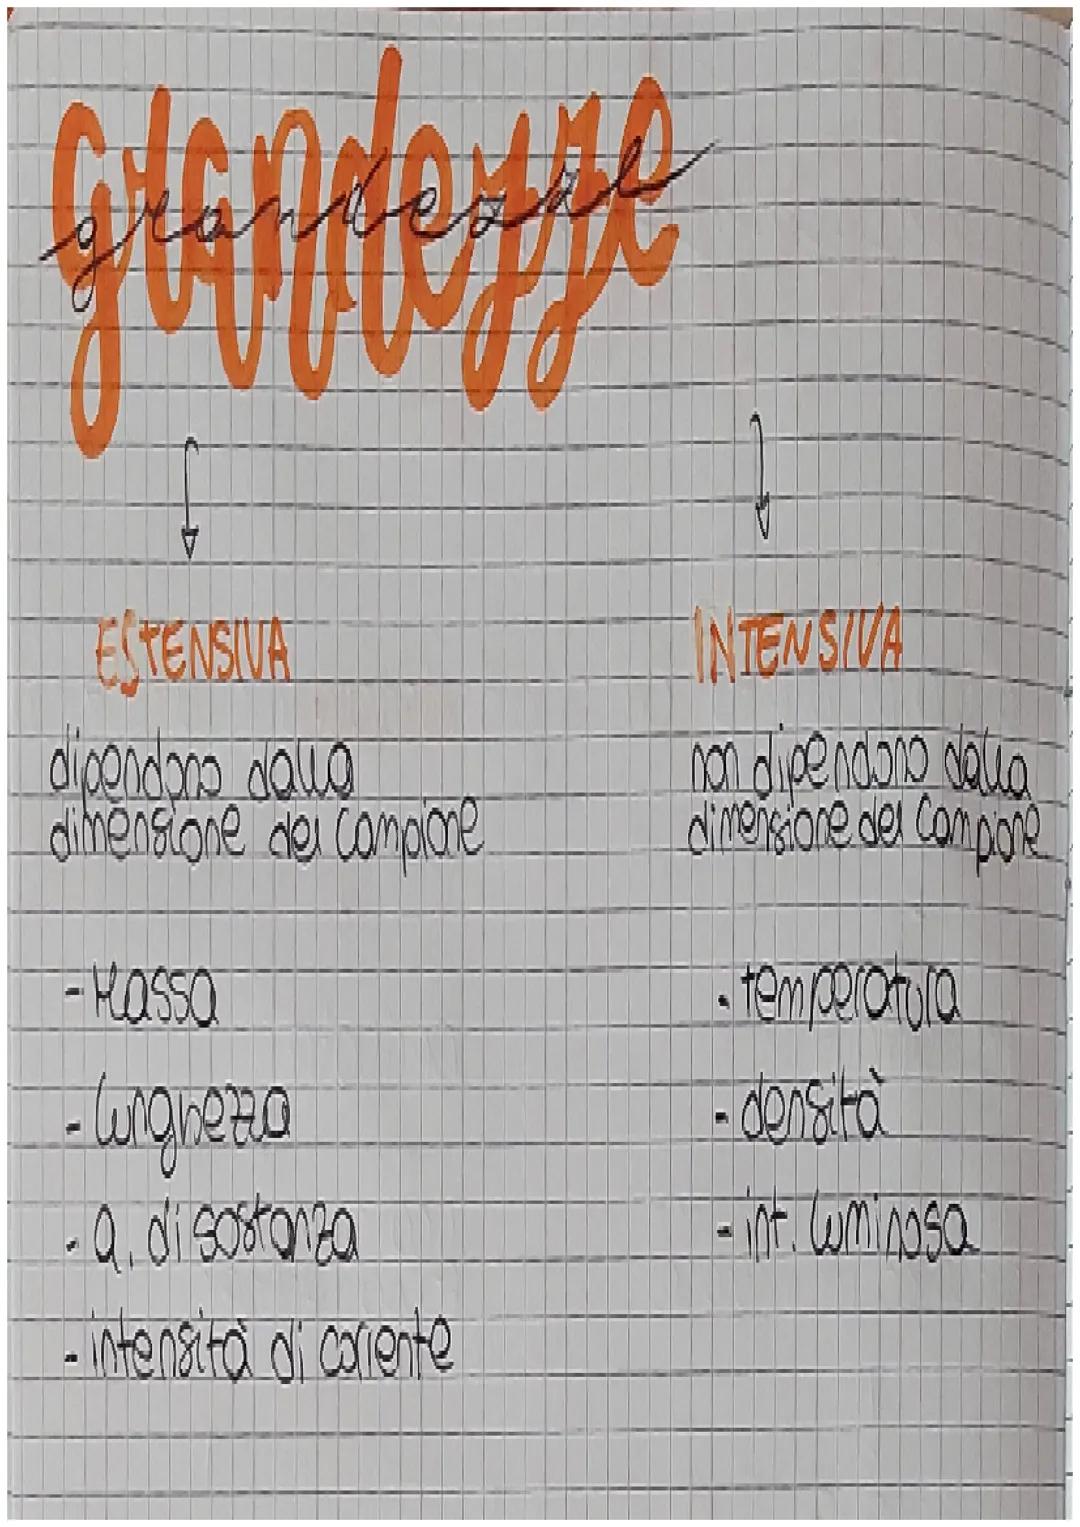 grandezze
grandezze
ESTENSIVA
dipendono dalla
dimensione del campione
- Massa
- lunghezza
- q. di sostanza
- intensità di corrente
INTENSIVA
non dipendono dalla
dimensione del campione
- temperatura
- densità
- int. luminosa